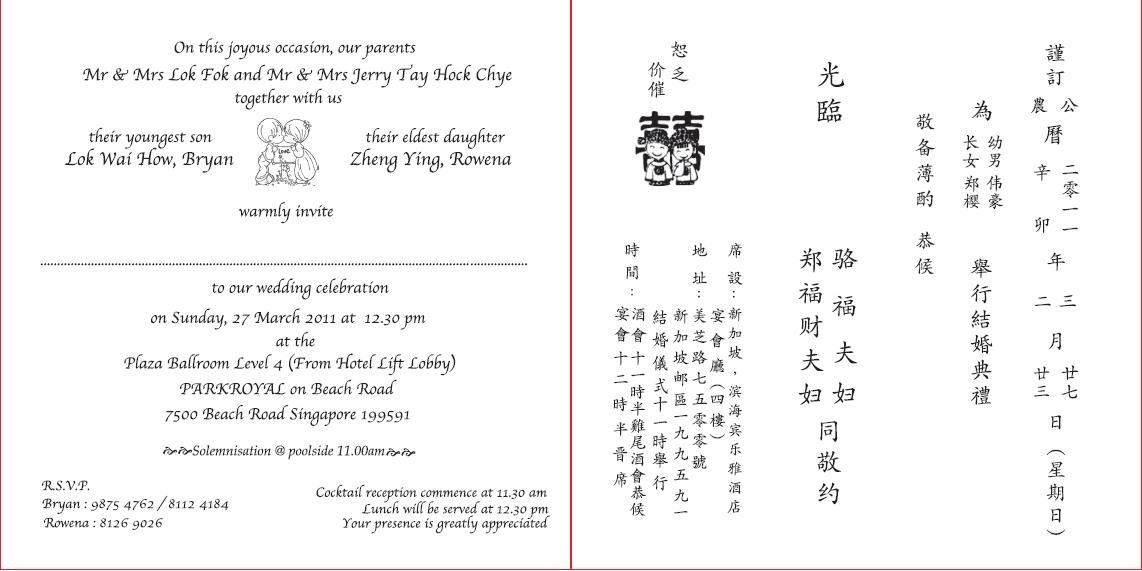 On this joyous occasion, our parents
Mr & Mrs Lok Fok and Mr & Mrs Jerry Tay Hock Chye
together with us
their youngest son
Lok Wai How, Bryan
their eldest daughter
Zheng Ying, Rowena
warmly invite
to our wedding celebration
on Sunday, 27 March 2011 at 12.30 pm
at the
Plaza Ballroom Level 4 (From Hotel Lift Lobby)
PARKROYAL on Beach Road
7500 Beach Road Singapore 199591
Solemnisation @ poolside 11.00am
R.S.V.P.
Bryan : 9875 4762 / 8112 4184
Rowena : 8126 9026
Cocktail reception commence at 11.30 am
Lunch will be served at 12.30 pm
Your presence is greatly appreciated
謹訂
公
農
曆
二零一一
辛卯
年
三
二
月
廿七
廿三
日（星期日）
為
幼男伟豪
长女郑樱
舉行結婚典禮
敬备薄酌 恭候
光臨
骆福夫妇
郑福财夫妇
同敬约
席設：新加坡，滨海宾乐雅酒店
宴會廳（四樓）
地址：美芝路七五零零號
新加坡邮區一九九五九一
結婚儀式十一時舉行
時間：酒會十一時半雞尾酒會恭候
宴會十二時半晋席
恕乏
价催
囍